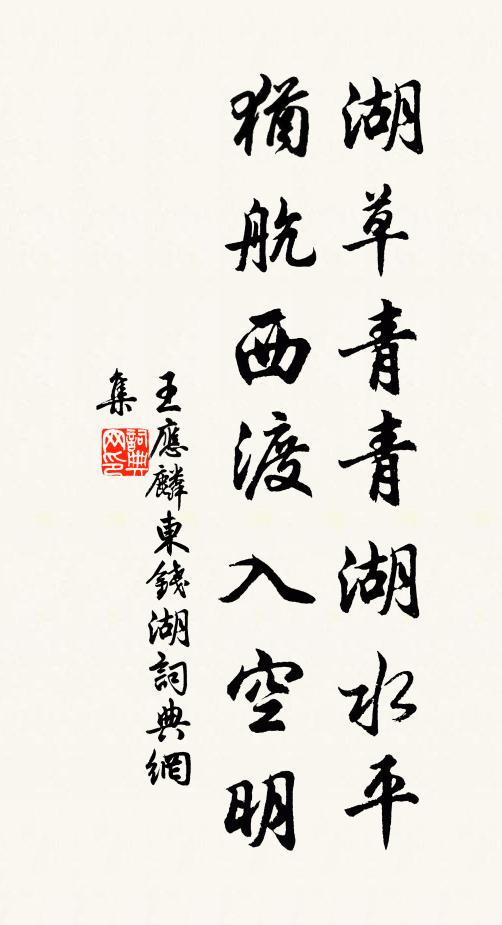 湖草青青湖水平
猶航西渡入空明
王應麟東錢湖詞典網
集
詞典
网印